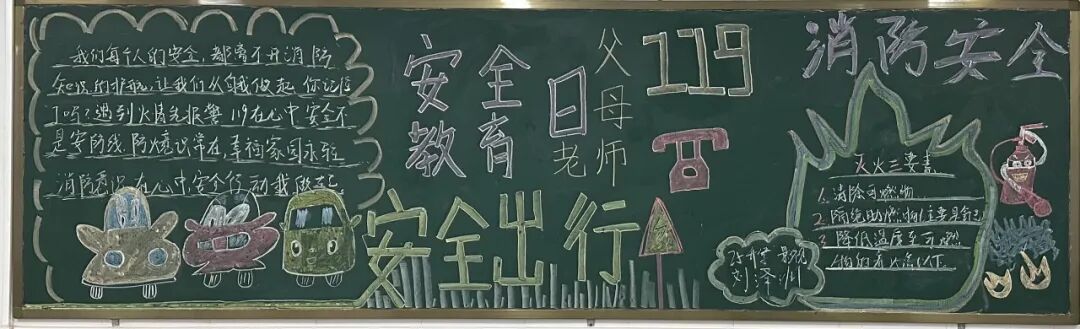 我们每个人的安全,都离不开消防
知识的护航,让我们从自我做起,你记住
了吗?遇到火情先报警 119在心中 安全不
是安防线 防火意识常在,幸福家园永驻
消防意识在心中,安全行动我做起
安全
教育
日
父母
老师
119
安全出行
消防安全
灭火三要素
1.消除可燃物
2.隔绝助燃物(主要是氧气)
3.降低温度至可燃
物的着火点以下
刘泽洲